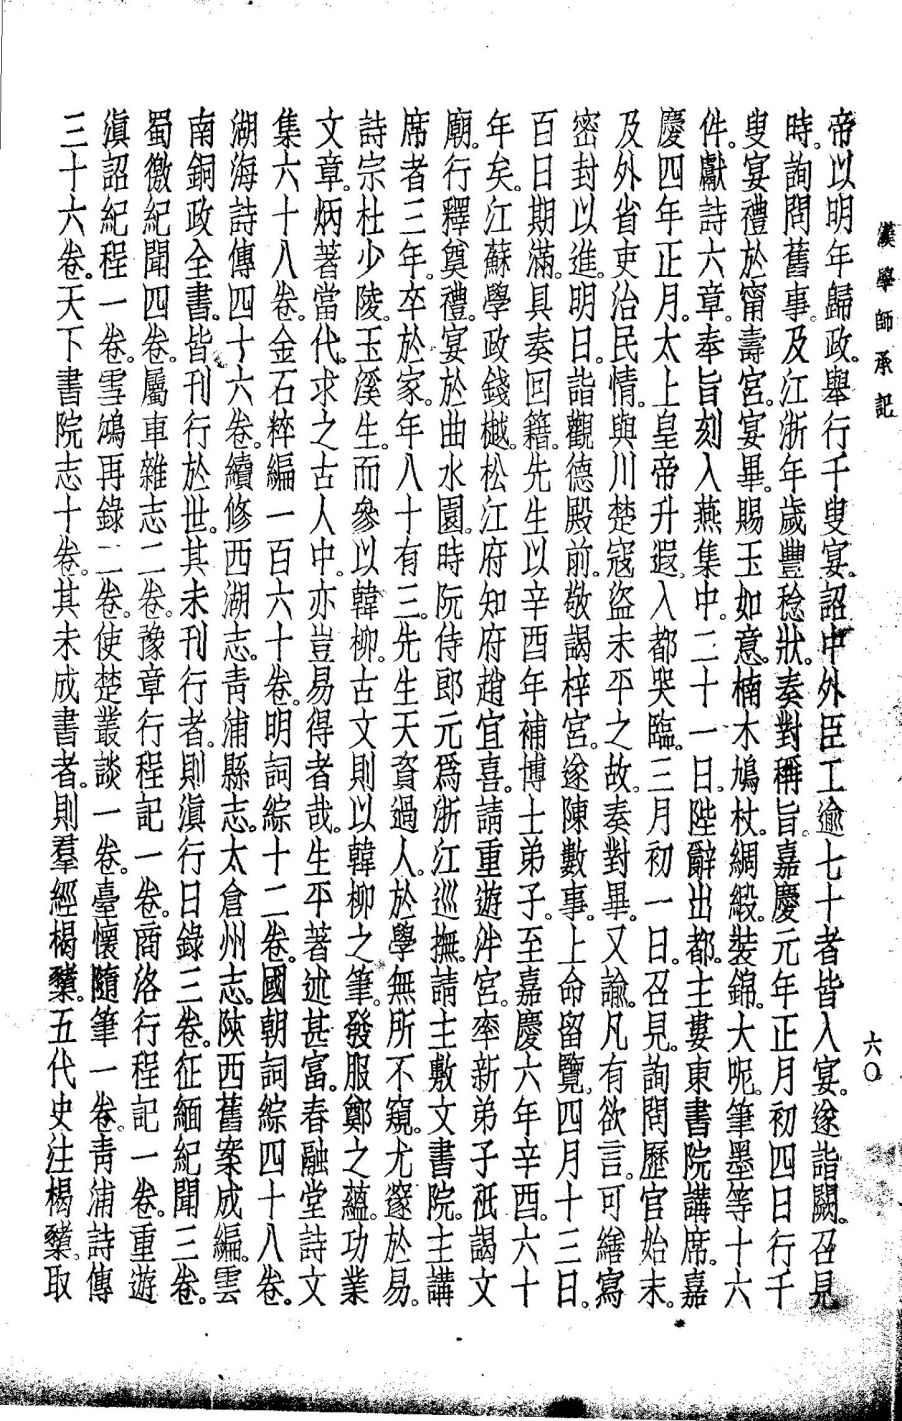 漢學師承記
六〇
帝以明年歸政。舉行千叟宴。詔中外臣工逾七十者皆入宴。遂詣闕。召見
時。詢問舊事。及江浙年歲豐稔狀。奏對稱旨。嘉慶元年正月初四日行千
叟宴禮於甯壽宮。宴畢。賜玉如意。楠木鳩杖。綢緞。裝錦。大呢。筆墨等十六
件。獻詩六章。奉旨刻入燕集中。二十一日。陛辭出都。主婁東書院講席。嘉
慶四年正月。太上皇帝升遐。入都哭臨。三月初一日。召見。詢問歷官始末。
及外省吏治民情。與川楚寇盜未平之故。奏對畢。又諭。凡有欲言。可繕寫
密封以進。明日。詣觀德殿前。敬謁梓宮。遂陳數事。上命留覽。四月十三日。
百日期滿。具奏回籍。先生以辛酉年補博士弟子。至嘉慶六年辛酉。六十
年矣。江蘇學政錢樾。松江府知府趙宜喜。請重遊泮宮。率新弟子祇謁文
廟。行釋奠禮。宴於曲水園。時阮侍郎元爲浙江巡撫。請主敷文書院。主講
席者三年。卒於家。年八十有三。先生天資過人。於學無所不窺。尤邃於易。
詩宗杜少陵。玉溪生。而參以韓柳。古文則以韓柳之筆。發服鄭之蘊。功業
文章。炳著當代。求之古人中。亦豈易得者哉。生平著述甚富。春融堂詩文
集六十八卷。金石粹編一百六十卷。明詞綜十二卷。國朝詞綜四十八卷。
湖海詩傳四十六卷。續修西湖志。青浦縣志。太倉州志。陝西舊案成編。雲
南銅政全書。皆刊行於世。其未刊行者。則滇行日錄三卷。征緬紀聞三卷。
蜀徼紀聞四卷。屬車雜志二卷。豫章行程記一卷。商洛行程記一卷。重遊
滇詔紀程一卷。雪鴻再錄二卷。使楚叢談一卷。臺懷隨筆一卷。青浦詩傳
三十六卷。天下書院志十卷。其未成書者。則羣經楬櫫。五代史注楬櫫。取